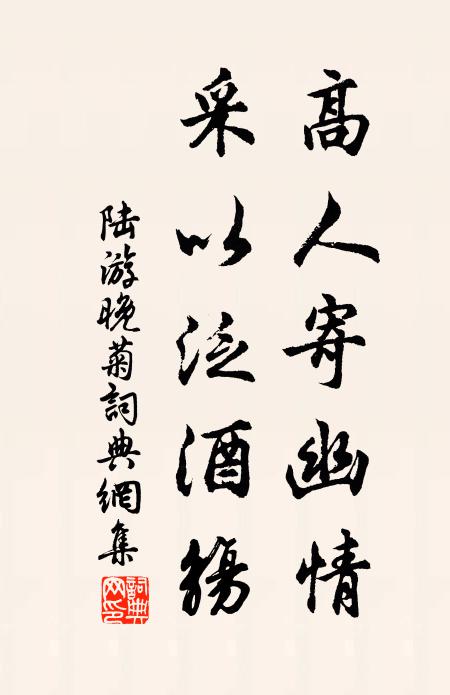 高人寄幽情
采以泛酒觴
陆游晚菊詞典網集
詞典网印